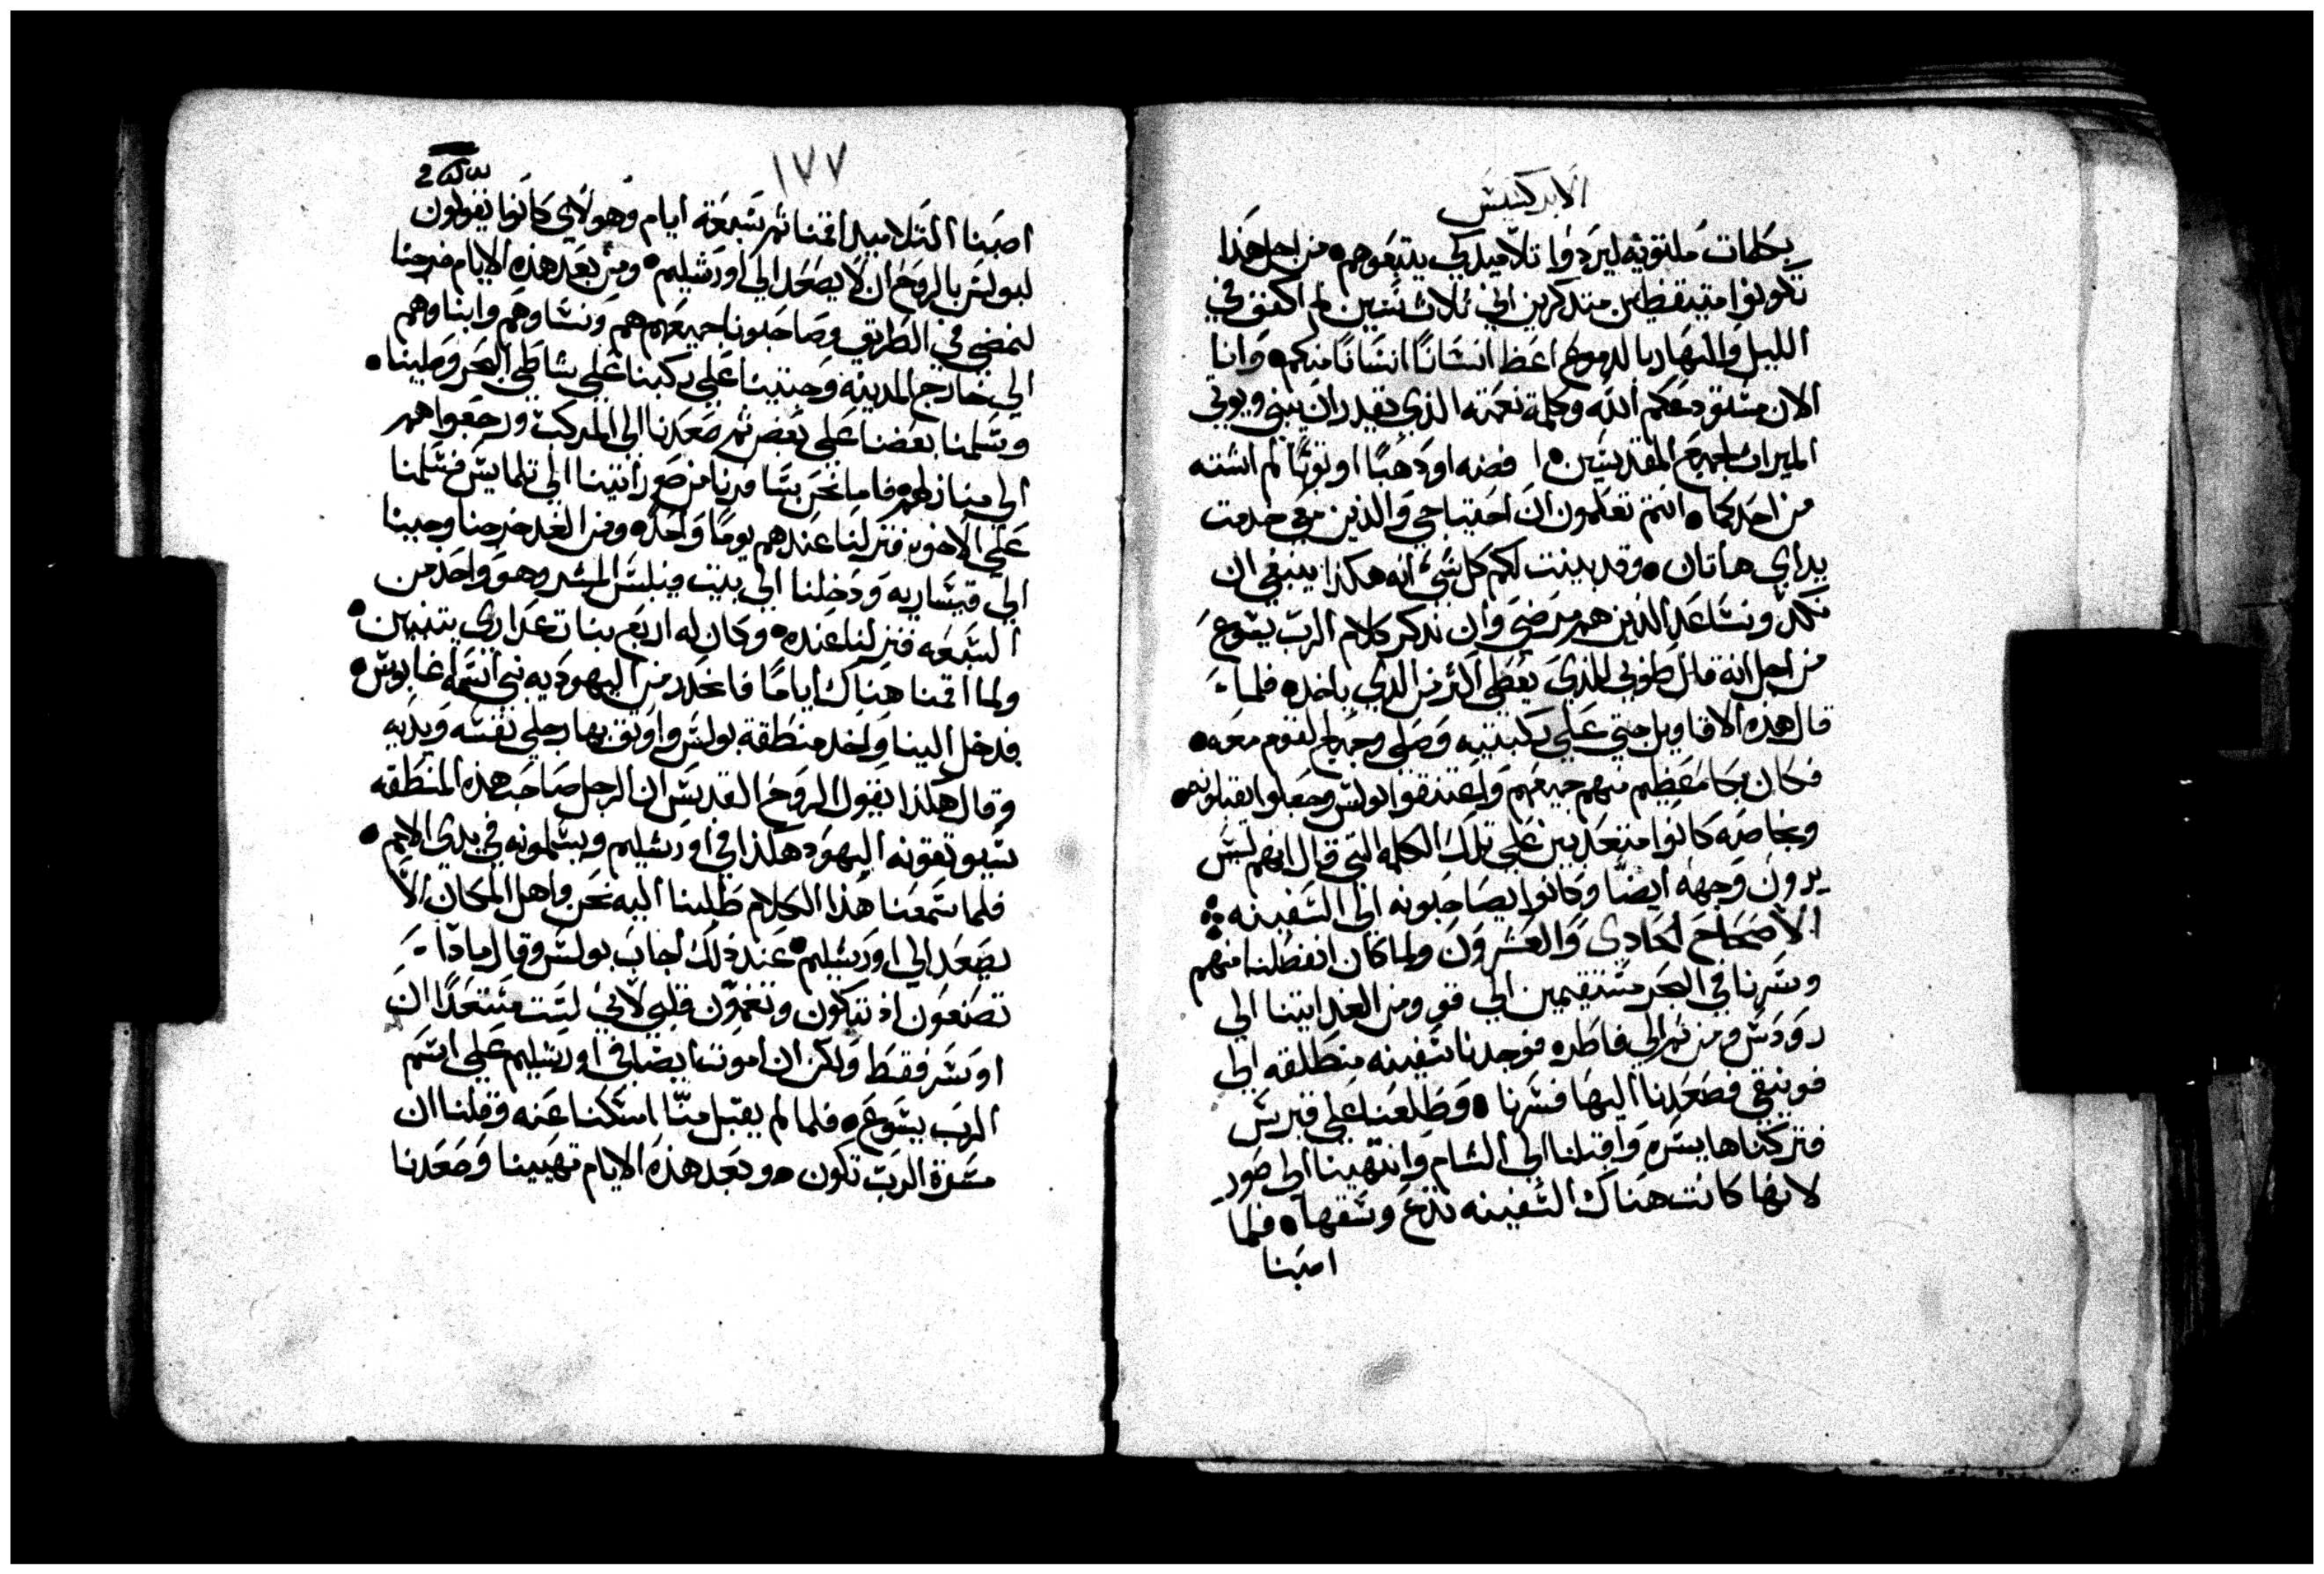 الابركسيس
بكلمات ملتويه ليردوا تلاميد لكي يتبعوهم • من اجل هدا
تكونوا متيقظين متدكرين اني ثلاث سنين لم اكفف في
الليل والنهار بالدموع اعظ انسانًا انسانًا منكم • وانا
الان مستودعكم الله وكلمة نعمته الذي يقدر ان يبني ويوتي
الميراث لجميع القديسين • فضه او دهبًا او توبًا لم اشته
من احد بحا • انتم تعلمون ان احتياجي والذين معي خدمت
يداي هاتان • وقد بينت لكم كل شيء انه هكذا ينبغي ان
نكد ونساعد الذين هم مرضي وان ندكر كلام الرب يسوع
من اجل انه قال طوبي للدي يعطي اكثر من الدي ياخد • فلما
قال هذه الاقاويل جتي علي ركبتيه وصلي وجميع القوم معه •
فكان بكا عظيم منهم جميعهم واعتنقوا بولس وجعلوا يقبلونه •
وبخاصه كانوا متعدبين علي تلك الكلمه التي قال انهم ليس
يرون وجهه ايضًا وكانوا يصاحبونه الي السفينه
الاصحاح الحادي والعشرون ولما كان انفصلنا منهم
وسرنا في البحر مستقيمين الي قو ومن الغد اتينا الي
رودس ومن تم الي فاطره فوجدنا سفينه منطلقه الي
فونيقي فصعدنا اليها فسرنا • وطلعنا علي قبرس
فتركناها يسره واقبلنا الي الشام وانتهينا الي صور
لانها كانت هناك السفينه تدع وسقها • فلما
اصبنا
١٧٧
اصبنا التلاميد اقمنا تم سبعة ايام وهولاي كانوا يقولون
لبولس بالروح ان لا يصعد الي اورشليم • ومن بعد هذه الايام خرجنا
لنمضي في الطريق وصاحبونا جميعهم هم ونساوهم وابناوهم
الي خارج المدينة وجتينا علي ركبنا علي شاطي البحر وصلينا •
وسلمنا بعضنا علي بعض تم صعدنا الي المركب ورجعوا هم
الي منازلهم • فاما نحن بسا فرنا من صور اتينا الي تلمايس فسلمنا
علي الاخوه فنزلنا عندهم يومًا واحدًا • ومن الغد خرجنا وجينا
الي قيساريه ودخلنا الي بيت فيلبس المبشر وهو واحد من
السبعه فنزلنا عنده • وكان له اربع بنات عداري يتنبين •
ولما اقمنا هناك ايامًا فانحدر من اليهوديه نبي اسمه اغابوس •
فدخل الينا واخد منطقة بولس واوتق بها رجلي نفسه ويديه
وقال هكذا يقول الروح القديس ان الرجل صاحب هذه المنطقه
سيوتقونه اليهود هكذا في اورشليم ويسلمونه في يدي الامم •
فلما سمعنا هذا الكلام طلبنا اليه نحن واهل المكان الا
يصعد الي اورشليم • عند ذلك اجاب بولس وقال مادا
تصنعون اذ تبكون وتغمون قلبي لاني ليست مستعدًا ان
اوسر فقط ولكن ان اموت ايضا في اورشليم علي اسم
الرب يسوع • فلما لم يقبل منّا امسكنا عنه وقلنا ان
مسرة الرب تكون • وبعد هذه الايام تهيينا وصعدنا